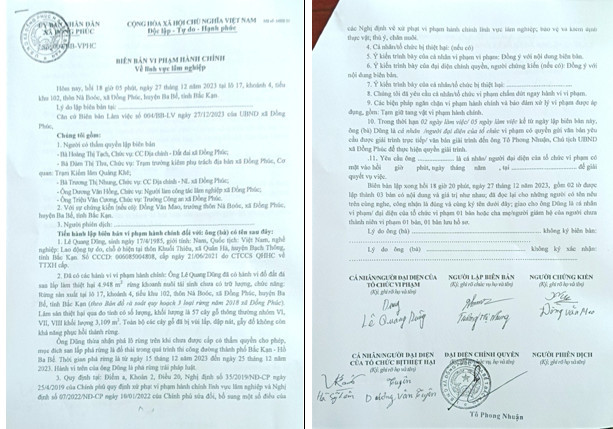 ỦY BAN NHÂN DÂN
XÃ ĐỒNG PHÚC
CỘNG HÒA XÃ HỘI CHỦ NGHĨA VIỆT NAM
Độc lập - Tự do - Hạnh phúc
BB-VPHC
BIÊN BẢN VI PHẠM HÀNH CHÍNH
Về lĩnh vực lâm nghiệp
Hôm nay, hồi 18 giờ 05 phút, ngày 27 tháng 12 năm 2023 tại lô 17, khoảnh 4, tiểu
khu 102, thôn Nà Boóc, xã Đồng Phúc, huyện Ba Bể, tỉnh Bắc Kạn.
Lý do lập biên bản tại:
Căn cứ Biên bản Làm việc số 004/BB-LV ngày 27/12/2023 của UBND xã Đồng
Phúc,
Chúng tôi gồm:
1. Người có thẩm quyền lập biên bản
- Bà Hoàng Thị Tạch, Chức vụ: CC Địa chính - Đất đai xã Đồng Phúc;
- Bà Đàm Thị Thu, Chức vụ: Trạm trưởng kiêm phụ trách địa bàn xã Đồng Phúc, Cơ
quan: Trạm Kiểm lâm Quảng Khê;
- Bà Trương Thị Nhung, Chức vụ: CC Địa chính - NL xã Đồng Phúc;
- Ông Dương Văn Hồng, Chức vụ: Người làm công tác lâm nghiệp xã Đồng Phúc;
- Ông Triệu Văn Cương, Chức vụ: Trưởng Công an xã Đồng Phúc.
2. Với sự chứng kiến (nếu có): Đồng Văn Mao, trưởng thôn Nà Boóc, xã Đồng Phúc,
huyện Ba Bể, tỉnh Bắc Kạn.
3. Người phiên dịch:
Tiến hành lập biên bản vi phạm hành chính đối với: ông (bà) có tên sau đây:
1. Lê Quang Dũng, sinh ngày 17/4/1985, giới tính: Nam, Quốc tịch: Việt Nam, nghề
nghiệp: Lao động tự do, chỗ ở hiện tại thôn Khuổi Thiêu, xã Quân Hà, huyện Bạch Thông,
tỉnh Bắc Kạn. Số CCCD: 006085004808, cấp ngày 21/06/2021 do CTCCS QLHC về
TTXH cấp.
2. Đã có các hành vi vi phạm hành chính: Ông Lê Quang Dũng đã có hành vi đổ đất đá
san lấp làm thiệt hại 4.948 m² rừng khoanh nuôi tái sinh chưa có trữ lượng, chức năng:
Rừng sản xuất tại lô 17, khoảnh 4, tiểu khu 102, thôn Nà Boóc, xã Đồng Phúc, huyện Ba
Bể, tỉnh Bắc Kạn (theo Bản đồ rà soát quy hoạch 3 loại rừng năm 2018 xã Đồng Phúc).
Lâm sản thiệt hại qua đo tính có số lượng, khối lượng là 57 cây gỗ thông thường nhóm VI,
VII, VIII khối lượng 3,109 m³. Toàn bộ các cây gỗ đã bị vùi lấp, dập nát, gẫy đổ không còn
khả năng phục hồi thành rừng.
Ông Dũng thừa nhận phá lô rừng trên khi chưa được cấp có thẩm quyền cho phép,
mục đích san lấp phá rừng là đổ đất thải trong quá trình thi công đường thành phố Bắc Kạn - Hồ
Ba Bể. Thời gian phá rừng là từ ngày 15 tháng 12 năm 2023 đến ngày 25 tháng 12 năm
2023. Hành vi nêu trên của ông Dũng là phá rừng trái pháp luật.
3. Quy định tại: Điểm a, Khoản 2, Điều 20, Nghị định số 35/2019/NĐ-CP ngày
25/4/2019 của Chính phủ quy định xử phạt vi phạm hành chính lĩnh vực lâm nghiệp và Nghị
định số 07/2022/NĐ-CP ngày 10/01/2022 của Chính phủ sửa đổi, bổ sung một số điều của
các Nghị định về xử phạt vi phạm hành chính lĩnh vực lâm nghiệp; bảo vệ và kiểm dịch
thực vật; thú y, chăn nuôi.
4. Cá nhân/tổ chức bị thiệt hại: (nếu có)
5. Ý kiến trình bày của cá nhân vi phạm vi phạm: Đồng ý với nội dung biên bản.
6. Ý kiến trình bày của đại diện chính quyền, người chứng kiến (nếu có): Đồng ý với
nội dung biên bản.
7. Ý kiến trình bày của cá nhân/tổ chức bị thiệt hại:
8. Chúng tôi đã yêu cầu cá nhân/tổ chức vi phạm chấm dứt ngay hành vi vi phạm.
9. Các biện pháp ngăn chặn vi phạm hành chính và bảo đảm xử lý vi phạm được áp
dụng, gồm: Tạm giữ tang vật vi phạm hành chính.
10. Trong thời hạn 02 ngày làm việc/ 05 ngày làm việc kể từ ngày lập biên bản này,
ông (bà) Dũng là cá nhân /người đại diện của tổ chức vi phạm có quyền gửi văn bản yêu
cầu được giải trình trực tiếp/ văn bản giải trình đến ông Tô Phong Nhuận, Chủ tịch UBND
xã Đồng Phúc để thực hiện quyền giải trình.
11. Yêu cầu ông ........ là cá nhân/ người đại diện của tổ chức vi phạm có
mặt vào hồi giờ phút, ngày tháng năm , tại ........ để giải
quyết vụ việc.
Biên bản lập xong hồi 18 giờ 20 phút, ngày 27 tháng 12 năm 2023, gồm 02 tờ được
lập thành 03 bản có nội dung và giá trị như nhau; đã đọc lại cho những người có tên nêu
trên cùng nghe, công nhận là đúng và cùng ký tên dưới đây; giao cho ông Dũng là cá nhân
vi phạm/ đại diện của tổ chức vi phạm 01 bản hoặc cha mẹ/người giám hộ của người chưa
thành niên vi phạm 01 bản, 01 bản lưu hồ sơ.
Lý do ông (bà) ........ không ký biên bản:
Lý do ông (bà) ........ không ký xác nhận:
CÁ NHÂN/NGƯỜI ĐẠI DIỆN CỦA
TỔ CHỨC VI PHẠM
(Ký, ghi rõ họ và tên)
Lê Quang Dũng
NGƯỜI LẬP BIÊN BẢN
(Ký, ghi rõ chức vụ họ và tên)
Trương Thị Nhung
NGƯỜI CHỨNG KIẾN
(Ký, ghi rõ họ và tên)
Đồng Văn Mao
CÁ NHÂN/NGƯỜI ĐẠI DIỆN
CỦA TỔ CHỨC BỊ THIỆT HẠI
(Ký, ghi rõ họ và tên)
ĐẠI DIỆN CHÍNH QUYỀN
Tô Phong Nhuận
NGƯỜI PHIÊN DỊCH
(Ký, ghi rõ họ và tên)